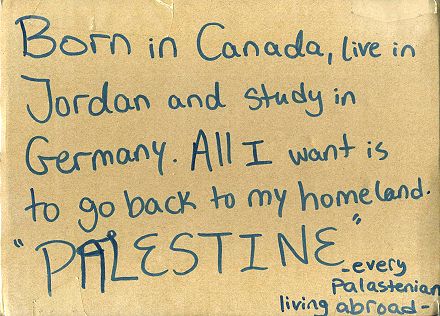 Born in Canada, live in
Jordan and study in
Germany. All I want is
to go back to my homeland.
"PALESTINE"
-every
Palastenian
living abroad-